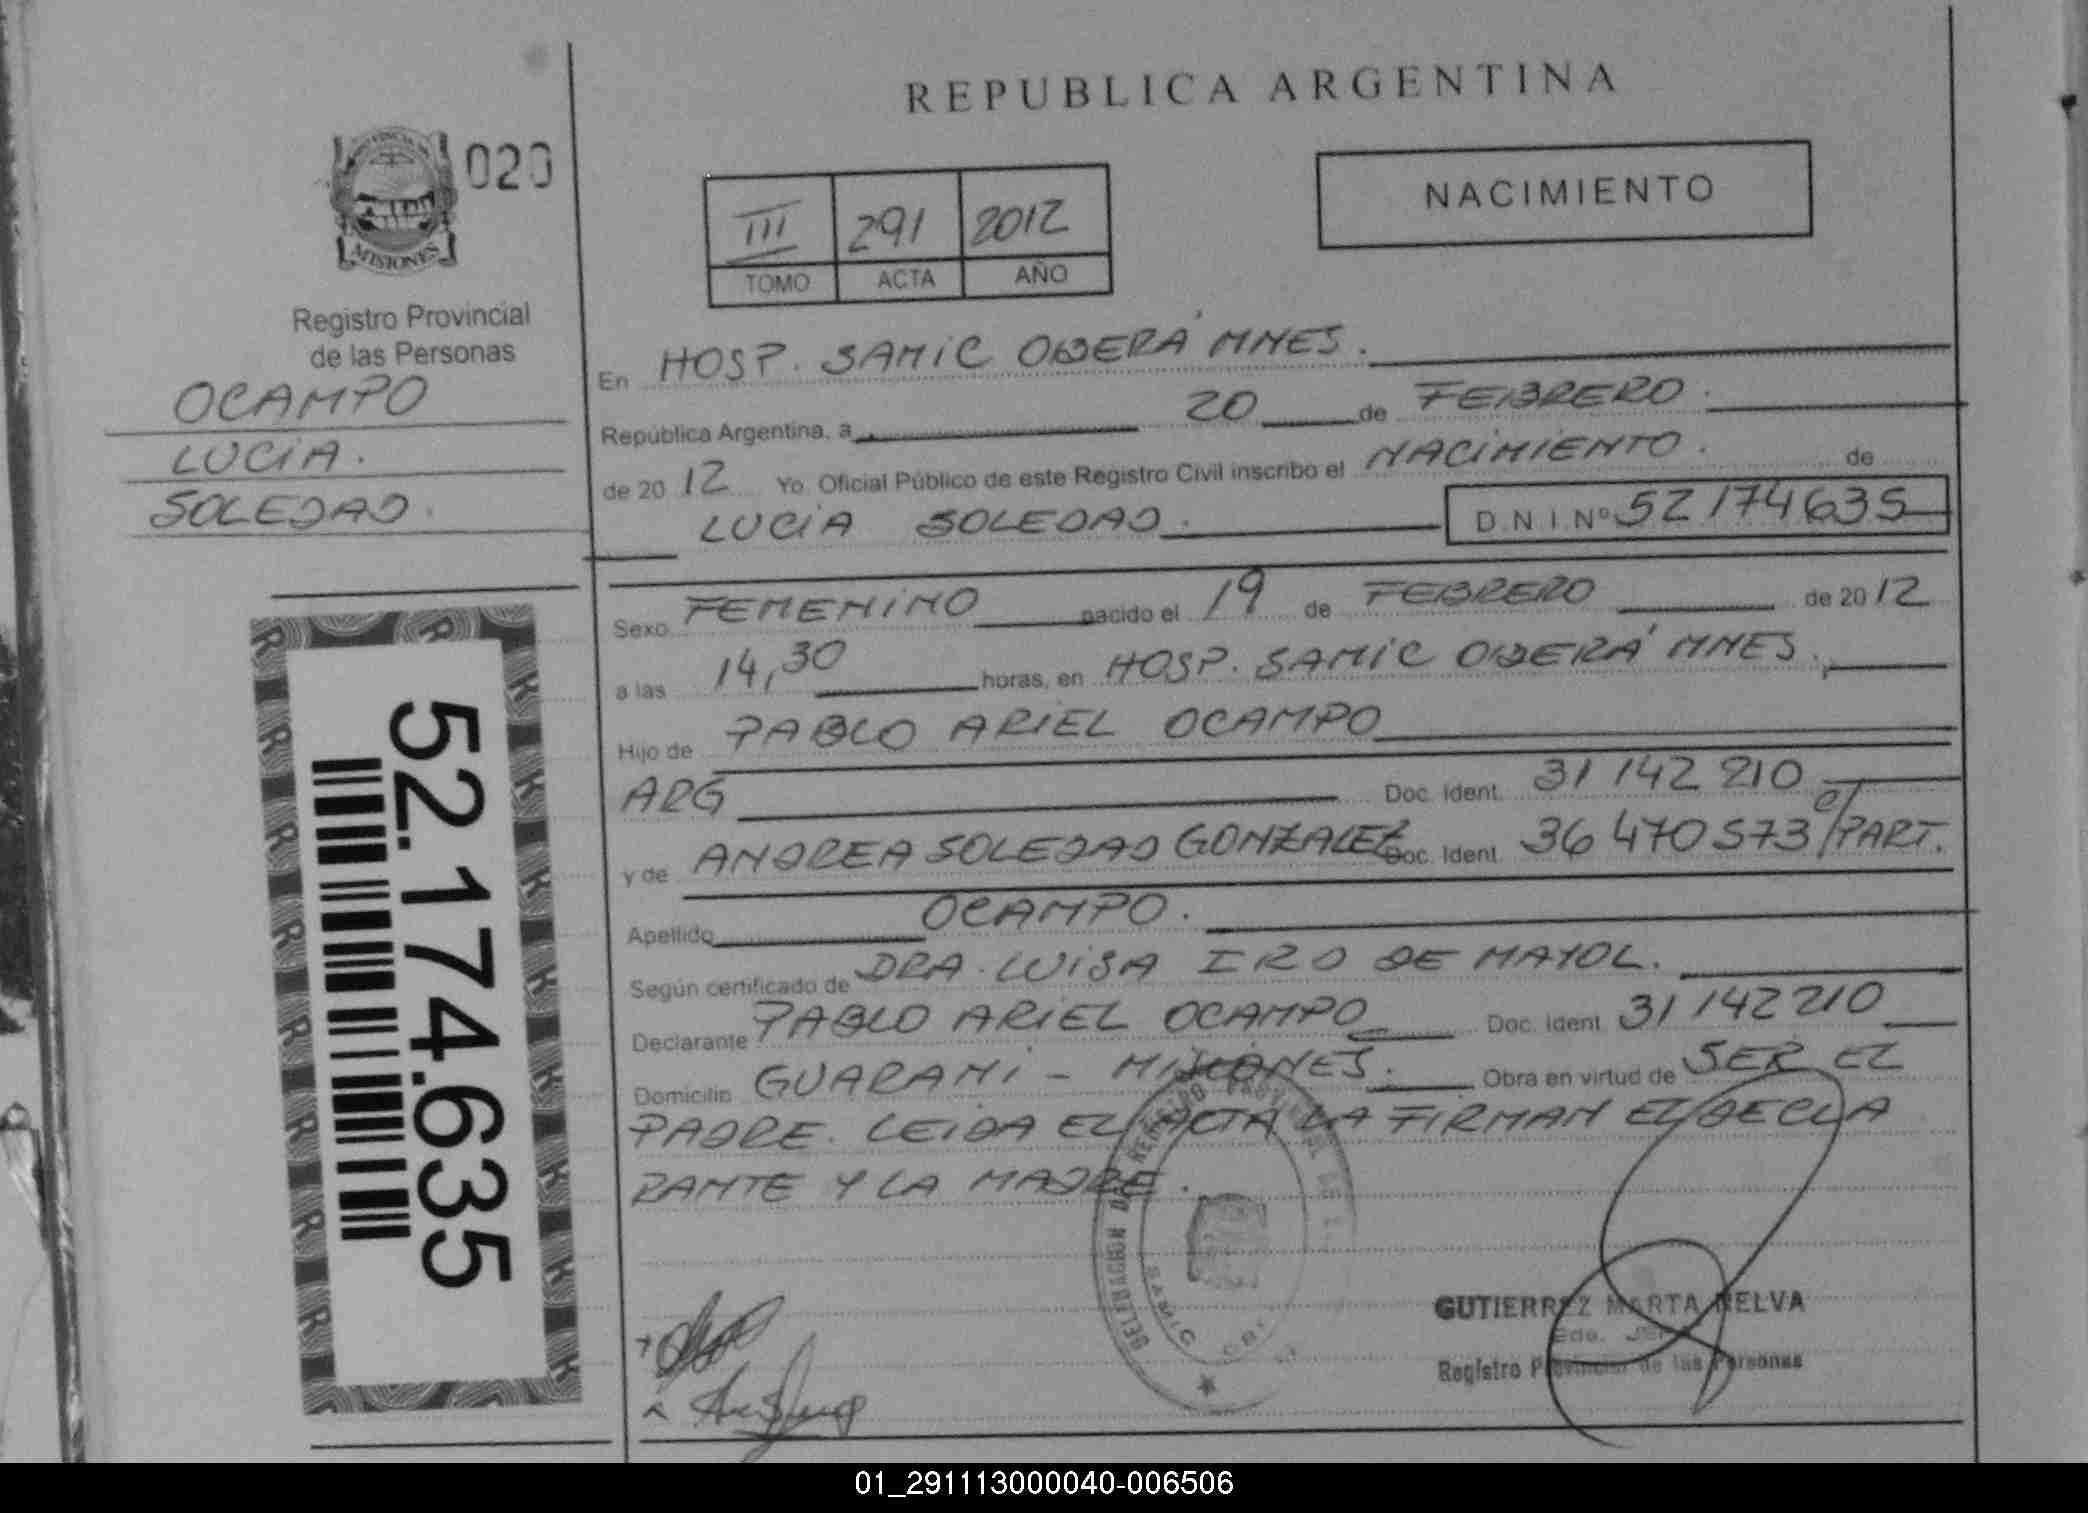 REPUBLICA ARGENTINA
020
MISIONES
Registro Provincial
de las Personas
OCAMPO
LUCÍA.
SOLEDAD.
52.174.635
NACIMIENTO
III 291 2012
TOMO ACTA AÑO
En HOSP. SAMIC OBERÁ MNES.
República Argentina, a 20 de FEBRERO.
de 2012 Yo, Oficial Público de este Registro Civil inscribo el NACIMIENTO. de
LUCÍA SOLEDAD. D.N.I.Nº 52174635
Sexo FEMENINO nacido el 19 de FEBRERO de 2012
a las 14,30 horas, en HOSP. SAMIC OBERÁ MNES.
Hijo de PABLO ARIEL OCAMPO
ARG Doc. Ident. 31 142 210
y de ANDREA SOLEDAD GONZALEZ Doc. Ident. 36 470 573 c/PART.
Apellido OCAMPO.
Según certificado de DRA. LUISA IRO DE MAYOL.
Declarante PABLO ARIEL OCAMPO Doc. Ident. 31 142 210
Domicilio GUARANI - MISIONES. Obra en virtud de SER EL
PADRE. LEIDA EL ACTA LA FIRMAN EL DECLA
RANTE Y LA MADRE.
GUTIERREZ MARTA NELVA
Registro Provincial de las Personas
01_291113000040-006506